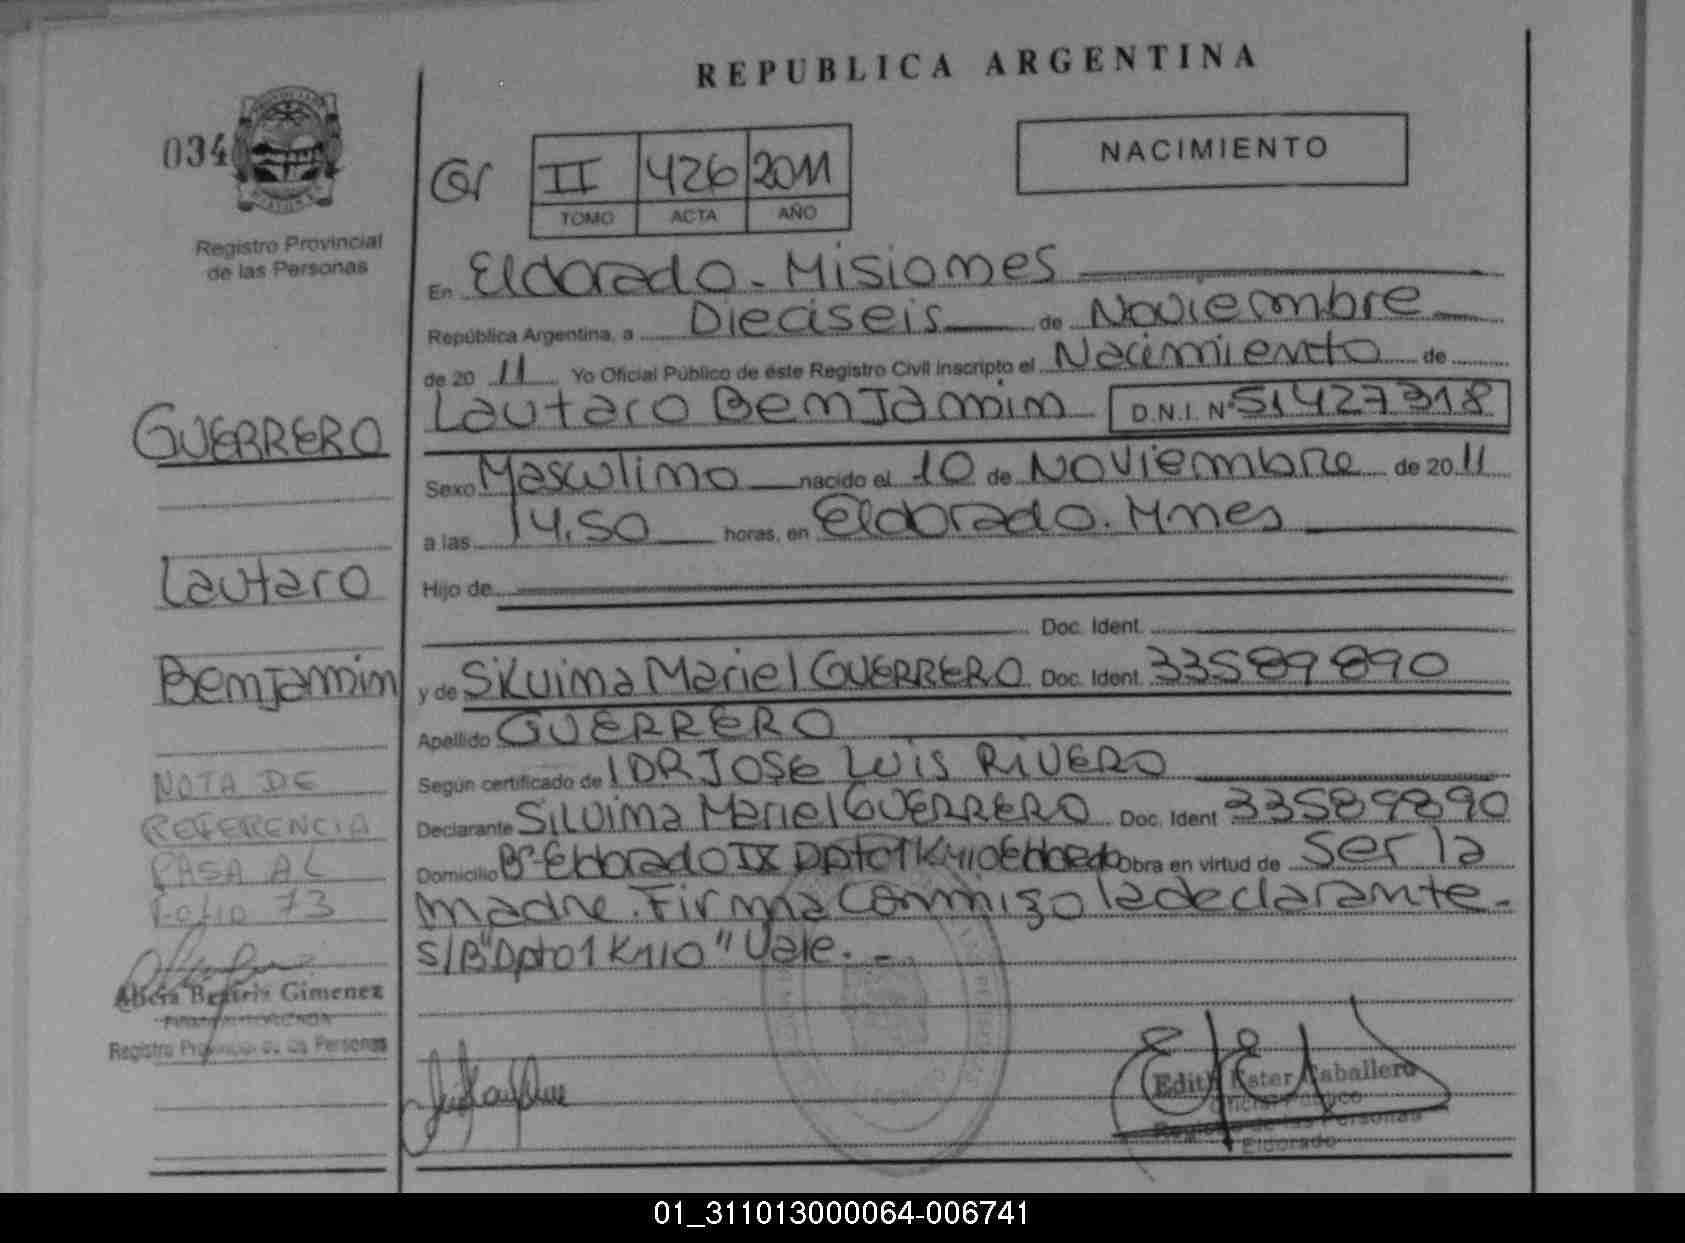 REPUBLICA ARGENTINA
034
Registro Provincial
de las Personas
Gr II 426 2011
TOMO ACTA AÑO
NACIMIENTO
En Eldorado - Misiones
República Argentina, a Dieciseis de Noviembre
de 20 11 Yo Oficial Público de éste Registro Civil Inscripto el Nacimiento de
Lautaro Benjamin D.N.I. Nº 51427318
Sexo Masculino nacido el 10 de Noviembre de 20 11
a las 14,50 horas, en Eldorado. Mnes
Hijo de
Doc. Ident.
y de Silvina Mariel GUERRERO Doc. Ident. 33589890
Apellido GUERRERO
Según certificado de DR JOSE LUIS RIVERO
Declarante Silvina Mariel GUERRERO Doc. Ident 33589890
Domicilio Bº Eldorado IX Dpto1 Km10 Eldorado Obra en virtud de ser la
madre. Firma conmigo la declarante.
S/B "Dpto1 Km10" Vale. -
GUERRERO
Lautaro
Benjamin
NOTA DE
REFERENCIA
PASA AL
Folio 73
Beatriz Gimenez
Registro Provincial de las Personas
Edith Ester Caballero
Oficial Público
Registro de las Personas
Eldorado
01_311013000064-006741